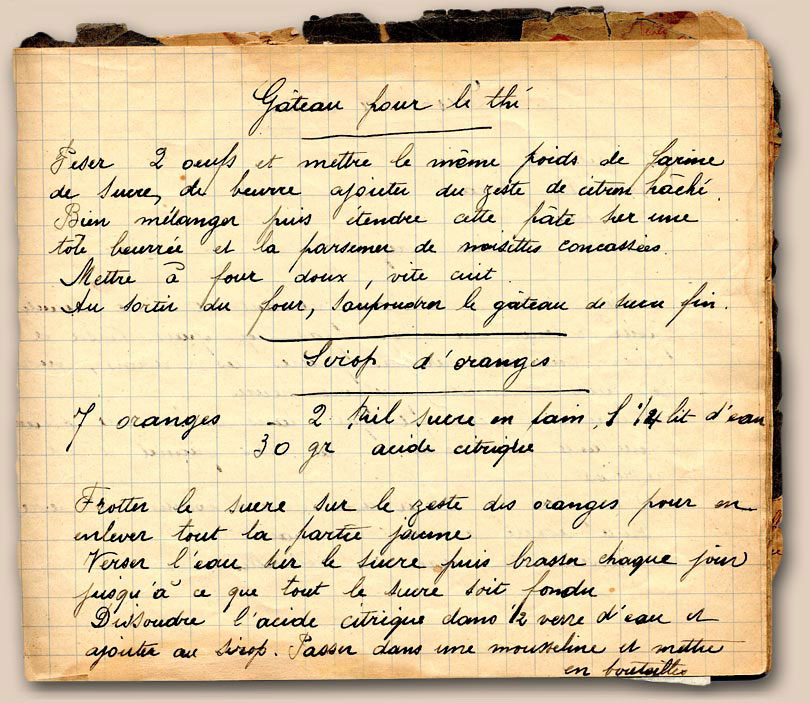 Gâteau pour le thé
Peser 2 oeufs et mettre le même poids de farine
de sucre, de beurre ajouter du zeste de citron hâché.
Bien mélanger puis étendre cette pâte sur une
tôle beurrée et la parsemer de noisettes concassées.
Mettre à four doux, vite cuit.
Au sortir du four, saupoudrer le gâteau de sucre fin.
Sirop d'oranges
7 oranges - 2 kil sucre en pain, 1 1/4 lit d'eau
30 gr acide citrique
Frotter le sucre sur le zeste des oranges pour en
enlever tout la partie jaune
Verser l'eau sur le sucre puis brasser chaque jour
jusqu'à ce que tout le sucre soit fondu
Dissoudre l'acide citrique dans 1/2 verre d'eau et
ajouter au sirop. Passer dans une mousseline et mettre
en bouteilles